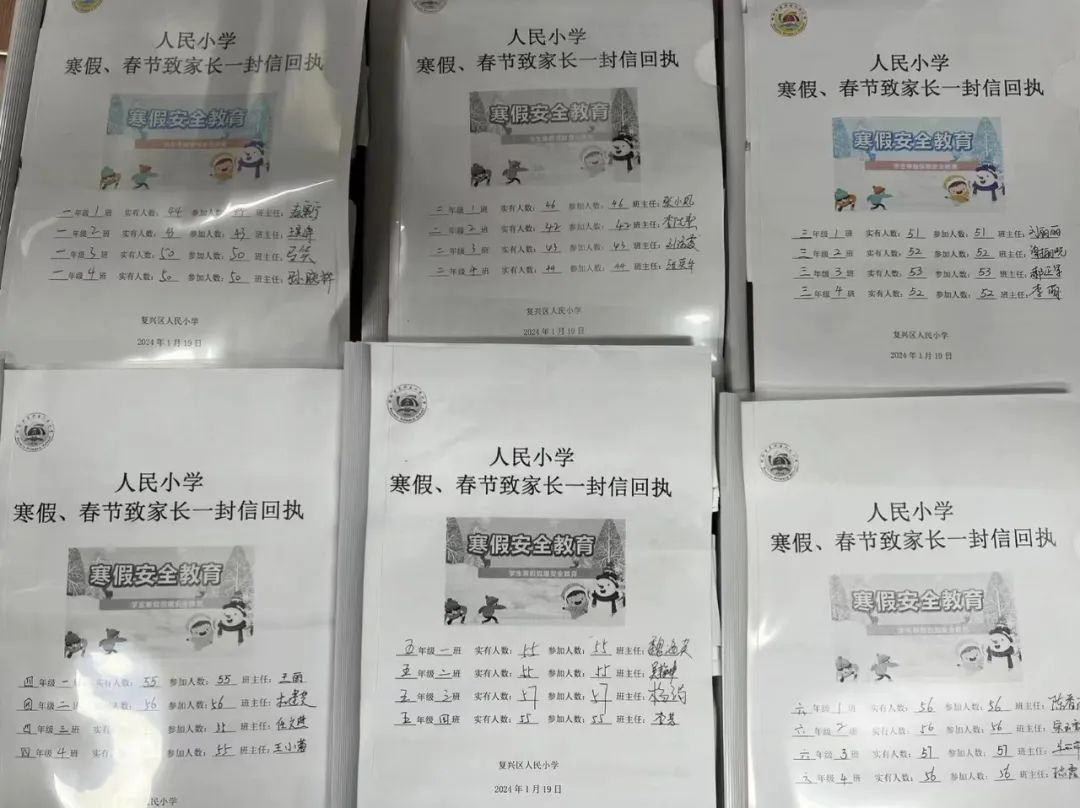 人民小学
寒假、春节致家长一封信回执
寒假安全教育
一年级1班 实有人数:44 参加人数:44 班主任:
一年级2班 实有人数:43 参加人数:43 班主任:
一年级3班 实有人数:50 参加人数:50 班主任:
一年级4班 实有人数:50 参加人数:50 班主任:孙晓
复兴区人民小学
2024年1月19日
人民小学
寒假、春节致家长一封信回执
寒假安全教育
二年级1班 实有人数:46 参加人数:46 班主任:张小凤
二年级2班 实有人数:42 参加人数:42 班主任:
二年级3班 实有人数:43 参加人数:43 班主任:
二年级4班 实有人数:44 参加人数:44 班主任:
复兴区人民小学
2024年1月19日
人民小学
寒假、春节致家长一封信回执
寒假安全教育
学生寒假假期安全教育
三年级1班 实有人数:51 参加人数:51 班主任:刘丽丽
三年级2班 实有人数:52 参加人数:52 班主任:
三年级3班 实有人数:53 参加人数:53 班主任:
三年级4班 实有人数:52 参加人数:52 班主任:李丽
复兴区人民小学
2024年1月19日
人民小学
寒假、春节致家长一封信回执
寒假安全教育
学生寒假假期安全教育
四年级一班 实有人数:55 参加人数:55 班主任:王丽
四年级二班 实有人数:56 参加人数:56 班主任:
四年级三班 实有 参加人数:55 班主任:
四年级4班 实有 参加人数:55 班主任:王小
复兴区人民小学
年1月19日
人民小学
寒假、春节致家长一封信回执
寒假安全教育
学生寒假假期安全教育
五年级一班 实有人数:55 参加人数:55 班主任:
五年级二班 实有人数:55 参加人数:55 班主任:
五年级三班 实有人数:57 参加人数:57 班主任:
五年级四班 实有人数:55 参加人数:55 班主任:
复兴区人民小学
2024年1月19日
人民小学
寒假、春节致家长一封信回执
寒假安全教育
六年级1班 实有人数:56 参加人数:56 班主任:陈
六年级2班 实有人数:56 参加人数:56 班主任:
六年级3班 实有人数:57 参加人数:57 班主任:
六年级4班 实有人数:56 参加人数:56 班主任: